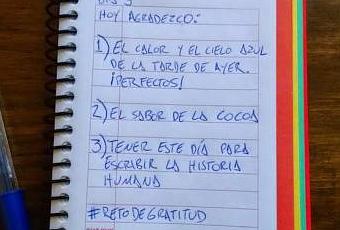 DÍA 3
HOY AGRADEZCO:
1) EL CALOR Y EL CIELO AZUL
DE LA TARDE DE AYER.
¡PERFECTOS!
2) EL SABOR DE LA COCOA
3) TENER ESTE DÍA PARA
ESCRIBIR LA HISTORIA
HUMANA
#RETODEGRATITUD